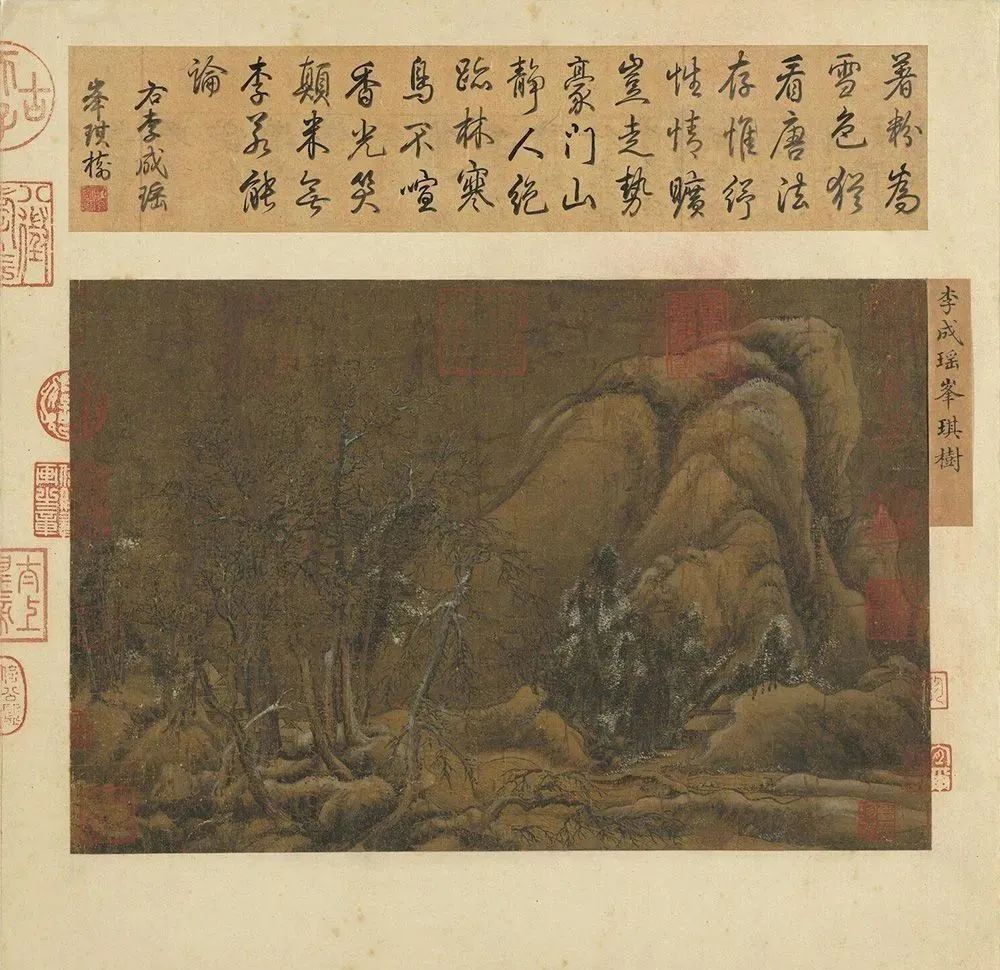 著粉為
雪色猶
看唐法
存惟紓
性情曠
豈走勢
豪門山
靜人絕
跡林寒
鳥不喧
香光笑
顛米無
李若能
論
右李成瑤
峯琪樹
李成瑤峯琪樹